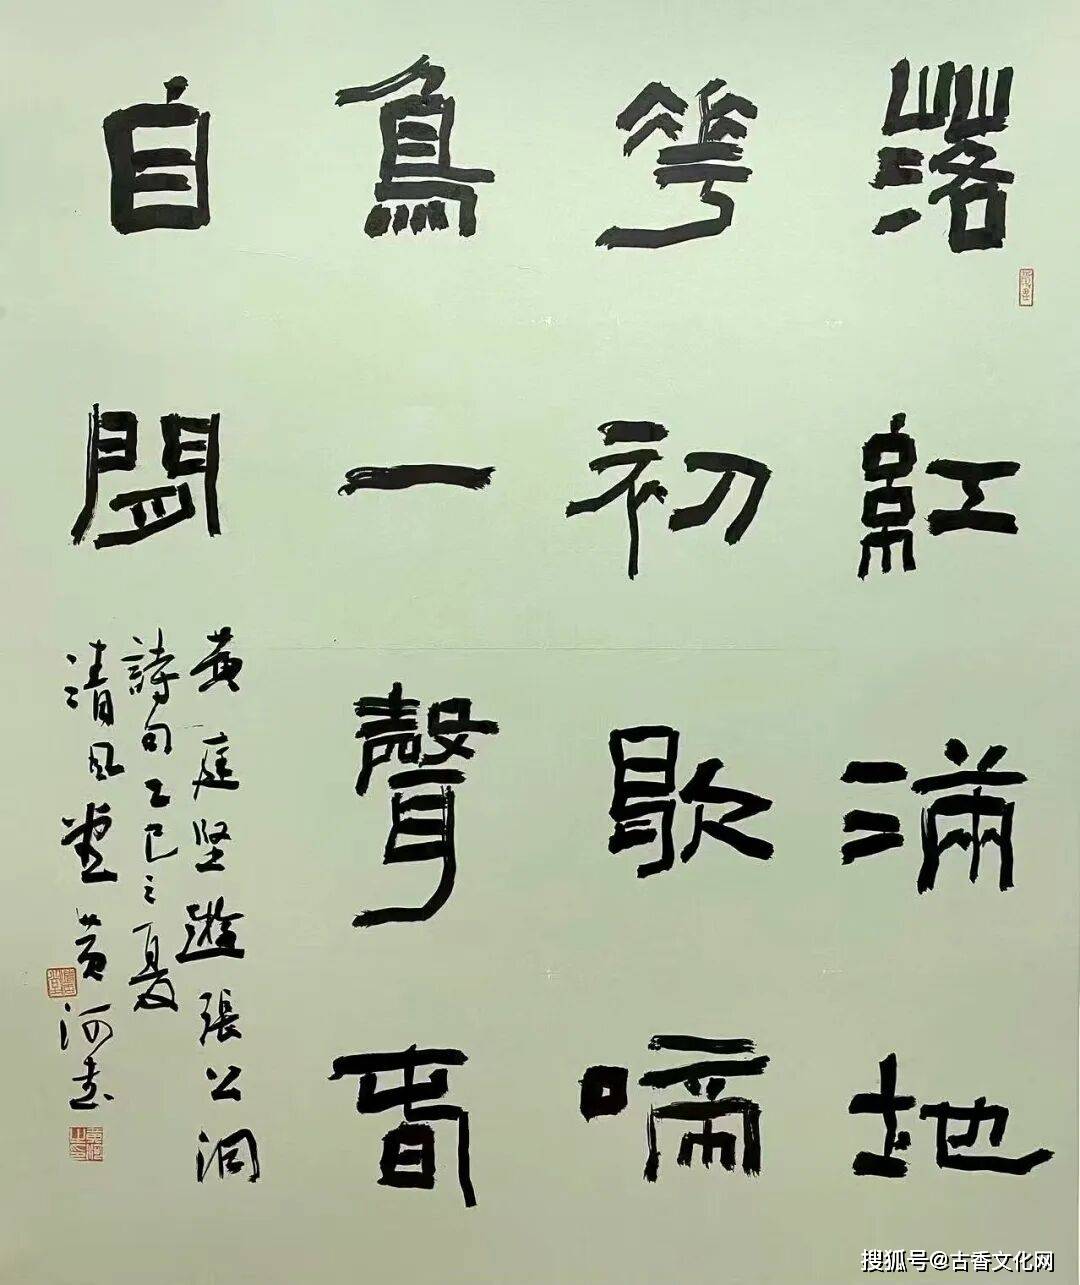 落紅滿地
華初歇啼
鳥一聲春
自閒
黄庭坚遊張公洞
詩句乙巳之夏
清风堂黄河書
搜狐号@古香文化网